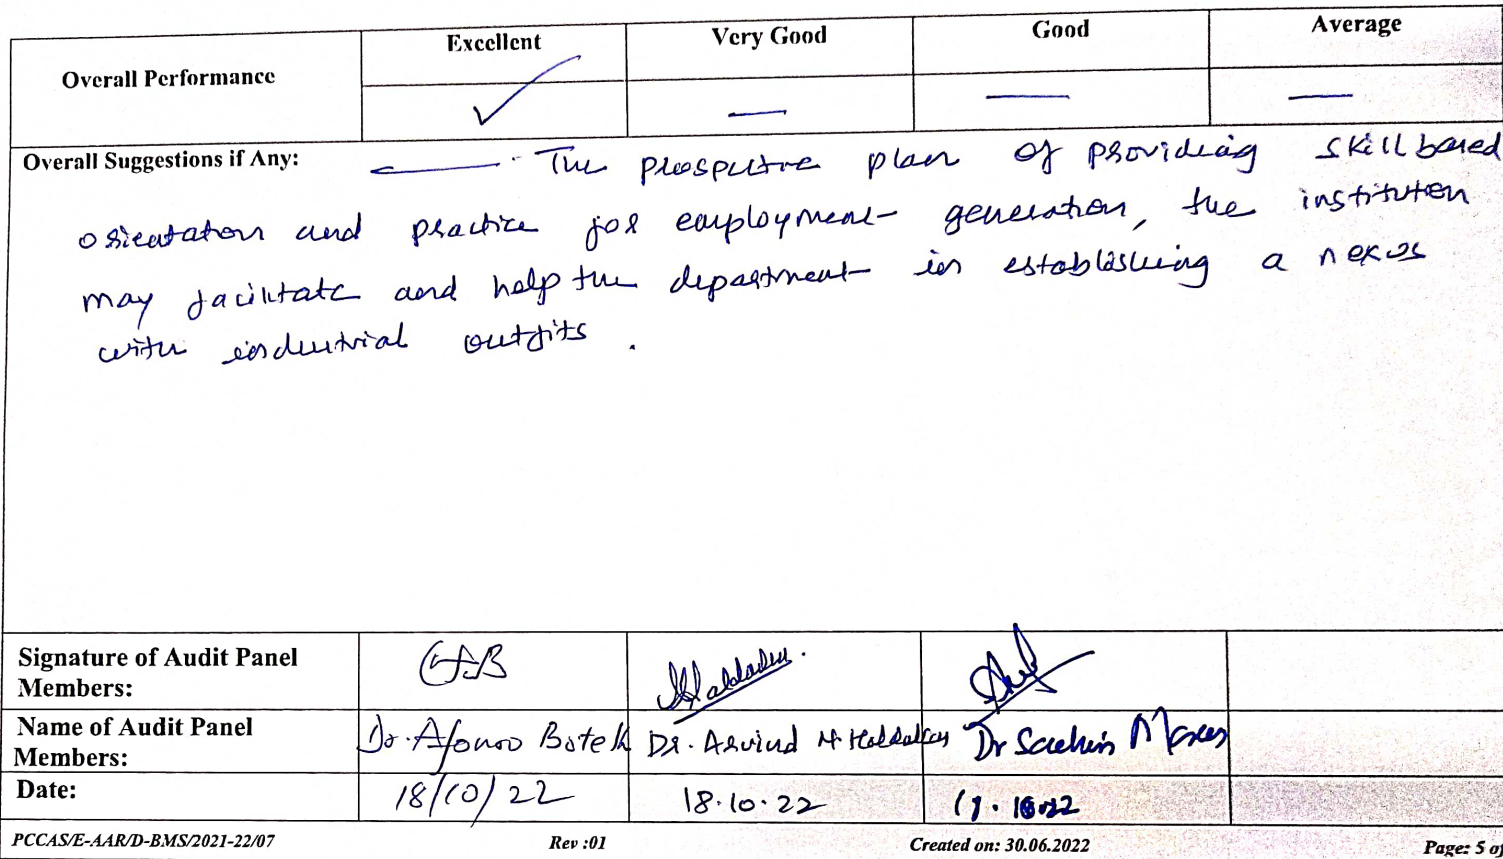 Overall Performance Excellent Very Good Good Average
Overall Suggestions if Any: The prospective plan of providing skill based
orientation and practice for employment generation, the institution
may facilitate and help the department in establishing a nexus
with industrial outfits.
Signature of Audit Panel
Members:
Name of Audit Panel
Members: Dr. Afonso Botelh Dr. Arvind N Haldankar Dr Sachin
Date: 18/10/22 18.10.22
PCCAS/E-AAR/D-BMS/2021-22/07 Rev :01 Created on: 30.06.2022 Page: 5 of